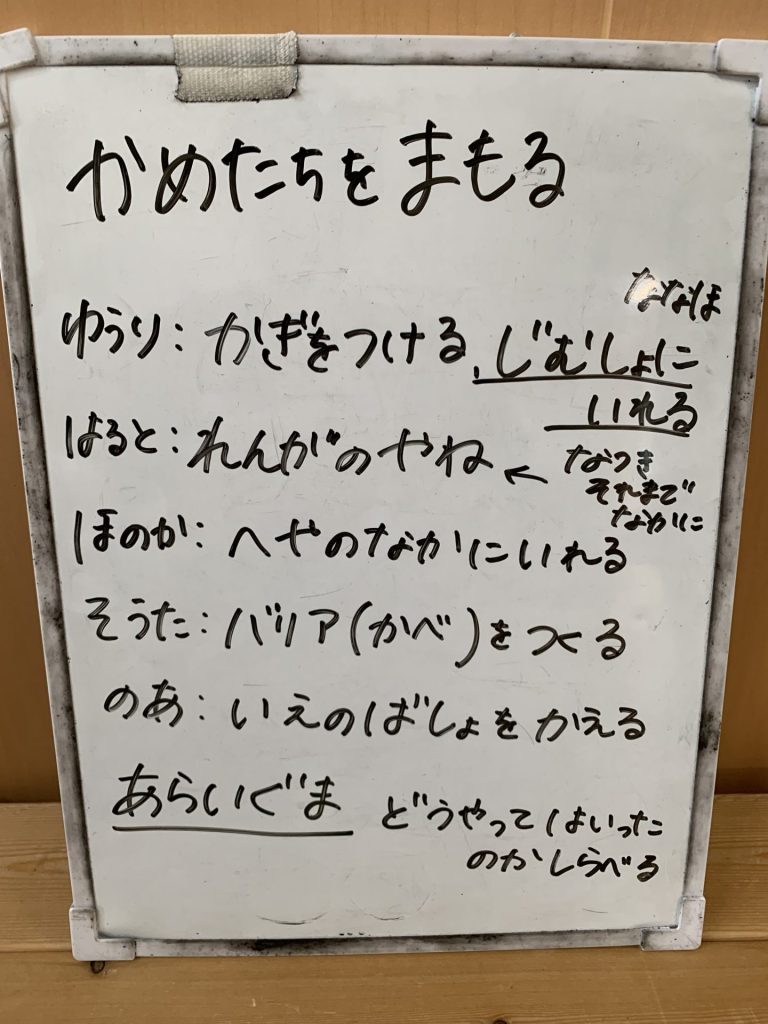 かめたちをまもる
ななほ
ゆうり：かぎをつける、じむしょに
いれる
はると：れんがのやね ← なつき
それまで
なかに
ほのか：へやのなかにいれる
そうた：バリア(かべ)をつくる
のあ：いえのばしょをかえる
あらいぐま どうやってはいった
のかしらべる